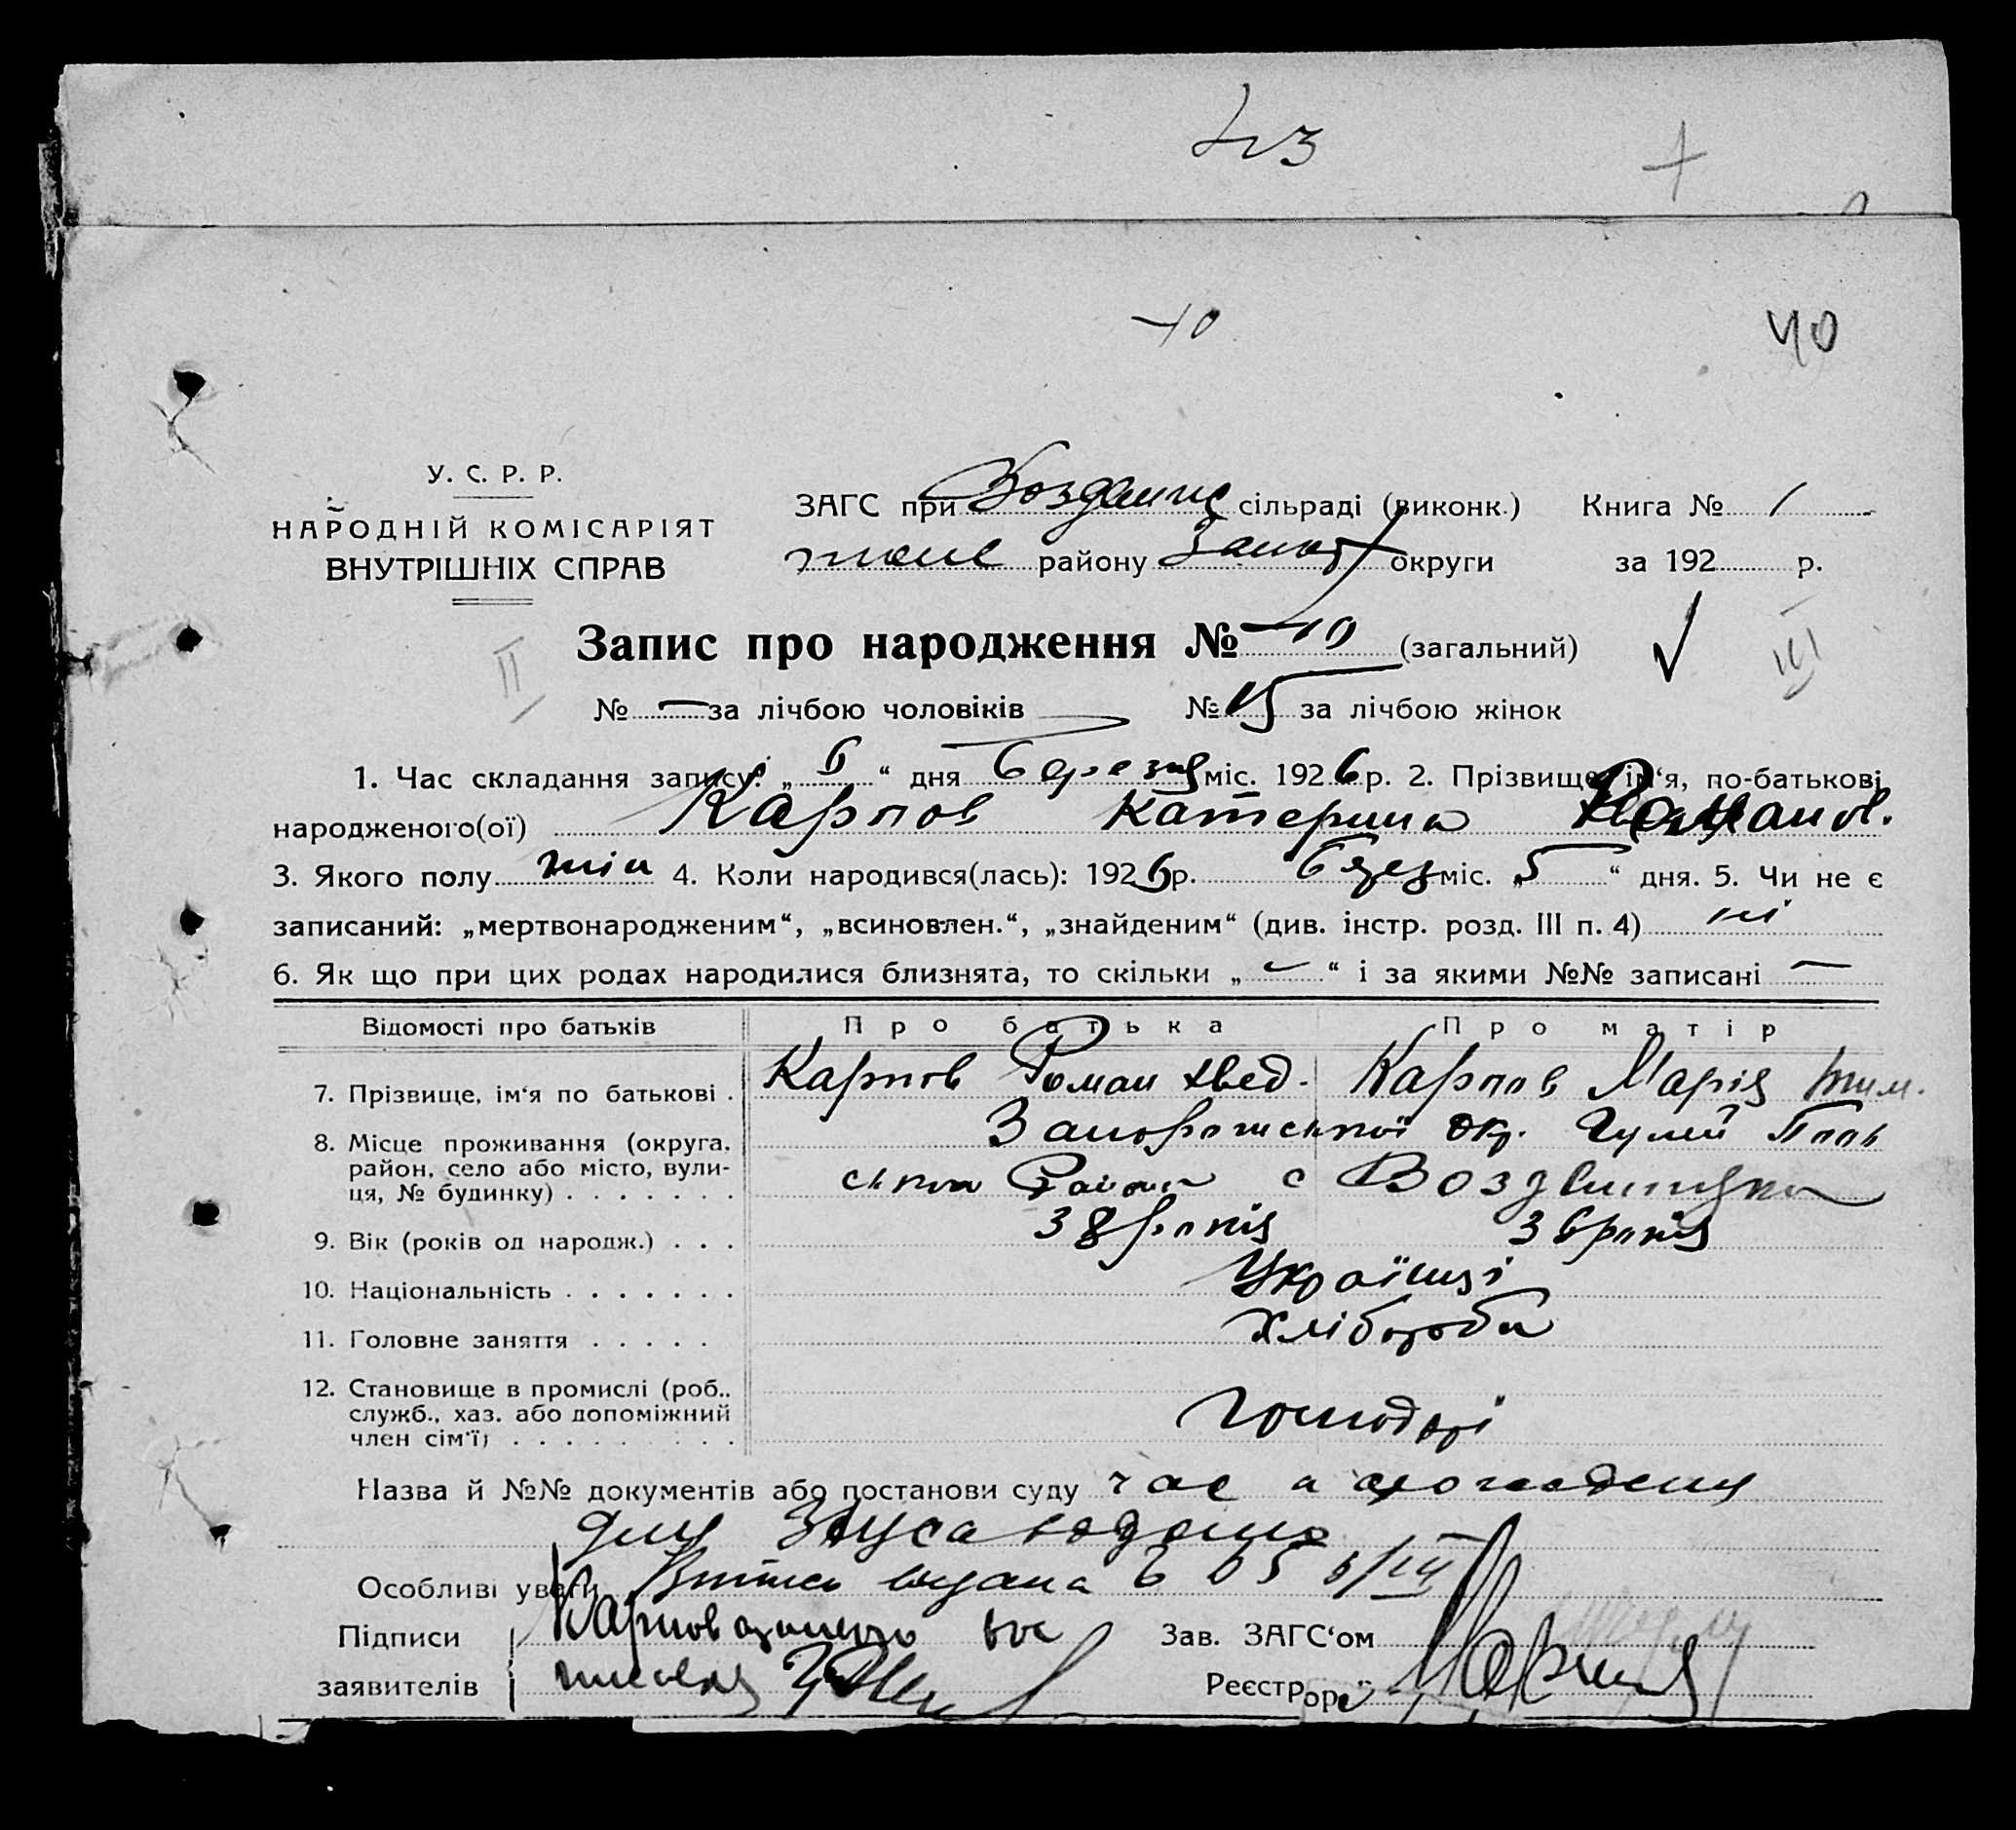 43
40
40
У. С. Р. Р.
НАРОДНІЙ КОМІСАРІЯТ
ВНУТРІШНІХ СПРАВ
ЗАГС при сільраді (виконк.) Книга № 1
району Запор округи за 192 р.
Запис про народження № 40 (загальний)
II III
№ — за лічбою чоловіків № 15 за лічбою жінок
1. Час складання запису: „ 6 “ дня березня міс. 192 6 р. 2. Прізвище, ім‘я, по-батькові
народженого(ої) Карпов Катерина Роман.
3. Якого полу жін 4. Коли народився(лась): 192 6 р. берез міс. „ 5 “ дня. 5. Чи не є
записаний: „мертвонародженим“, „всиновлен.“, „знайденим“ (див. інстр. розд. III п. 4) ні
6. Як що при цих родах народилися близнята, то скільки „ — “ і за якими №№ записані —
Відомості про батьків Про батька Про матір
7. Прізвище, ім‘я по батькові . Карпов Роман Хвед. Карпов Марія Тим.
8. Місце проживання (округа, Запорожської Окр. Гуляй Поль
район, село або місто, вули- ського Району с Воздвишувка
ця, № будинку)
9. Вік (років од народж.) 38 років 36 років
10. Національність Українці
11. Головне заняття Хлібороби
12. Становище в промислі (роб.,
служб., хаз. або допоміжний Господарі
член сім‘ї)
Назва й №№ документів або постанови суду
Особливі уваги видана
Підписи Карпов Зав. ЗАГС‘ом
заявителів Реєстрор